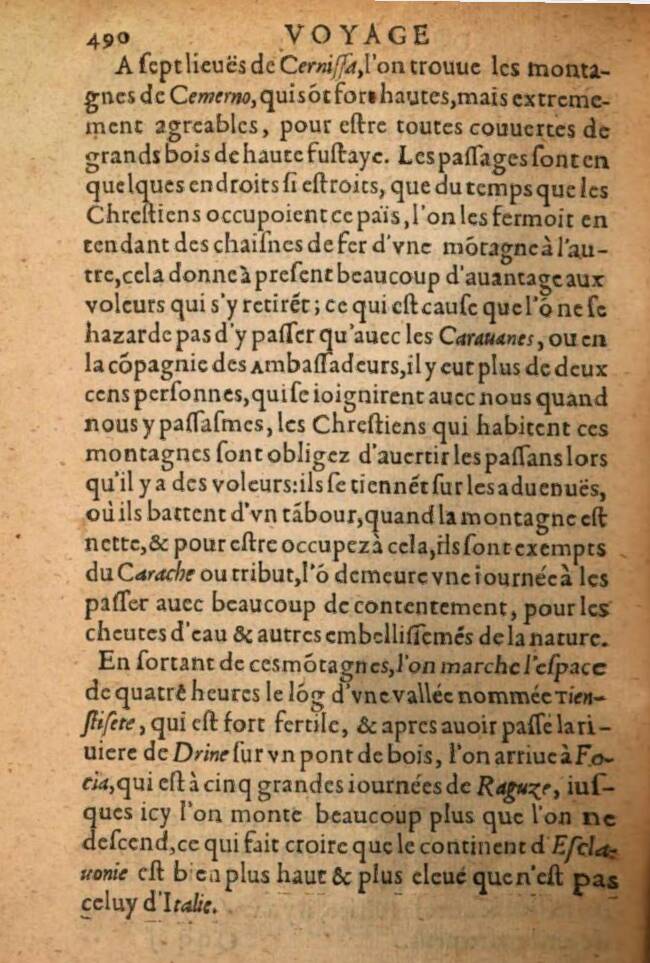 490 VOYAGE
A ſept lieuës de Cerniſſa, l'on trouue les monta-
gnes de Cemerno, qui sõt fort hautes, mais extreme-
ment agreables, pour eſtre toutes couuertes de
grands bois de haute fuſtaye. Les paſſages ſont en
quelques endroits ſi eſtroits, que du temps que les
Chreſtiens occupoient ce païs, l'on les fermoit en
tendant des chaiſnes de fer d'vne mõtagne à l'au-
tre, cela donne à preſent beaucoup d'auantage aux
voleurs qui s'y retirẽt; ce qui eſt cauſe que l'õ ne ſe
hazarde pas d'y paſſer qu'auec les Carauanes, ou en
la cõpagnie des Ambaſſadeurs, il y eut plus de deux
cens perſonnes, qui ſe ioignirent auec nous quand
nous y paſſaſmes, les Chreſtiens qui habitent ces
montagnes ſont obligez d'auertir les paſſans lors
qu'il y a des voleurs: ils ſe tiennẽt ſur les aduenuës,
où ils battent d'vn tãbour, quand la montagne eſt
nette, & pour eſtre occupez à cela, ils ſont exempts
du Carache ou tribut, l'õ demeure vne iournée à les
paſſer auec beaucoup de contentement, pour les
cheutes d'eau & autres embelliſſemẽs de la nature.
En ſortant de ces mõtagnes, l'on marche l'eſpace
de quatre heures le lõg d'vne vallée nommée Tien-
ſtiſete, qui eſt fort fertile, & apres auoir paſſé la ri-
uiere de Drine ſur vn pont de bois, l'on arriue à Fo-
cia, qui eſt à cinq grandes iournées de Raguze, iuſ-
ques icy l'on monte beaucoup plus que l'on ne
deſcend, ce qui fait croire que le continent d'Eſcla-
uonie eſt bien plus haut & plus eleué que n'eſt pas
celuy d'Italie.